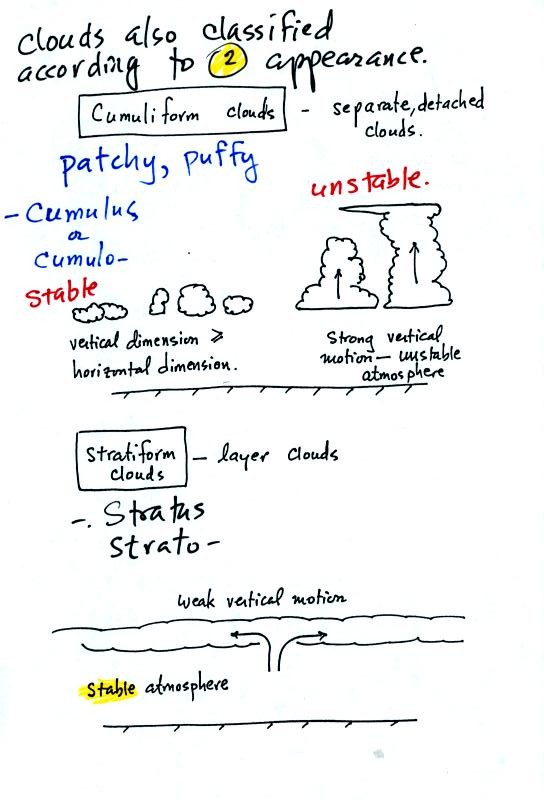 Clouds also classified
according to 2 appearance.
Cumuliform clouds - separate, detached
clouds.
patchy, puffy
unstable.
- Cumulus
or
Cumulo-
Stable
vertical dimension ≥
horizontal dimension.
Strong vertical
motion - unstable
atmosphere
Stratiform
clouds
- layer clouds
-. Stratus
Strato-
Weak vertical motion
Stable atmosphere